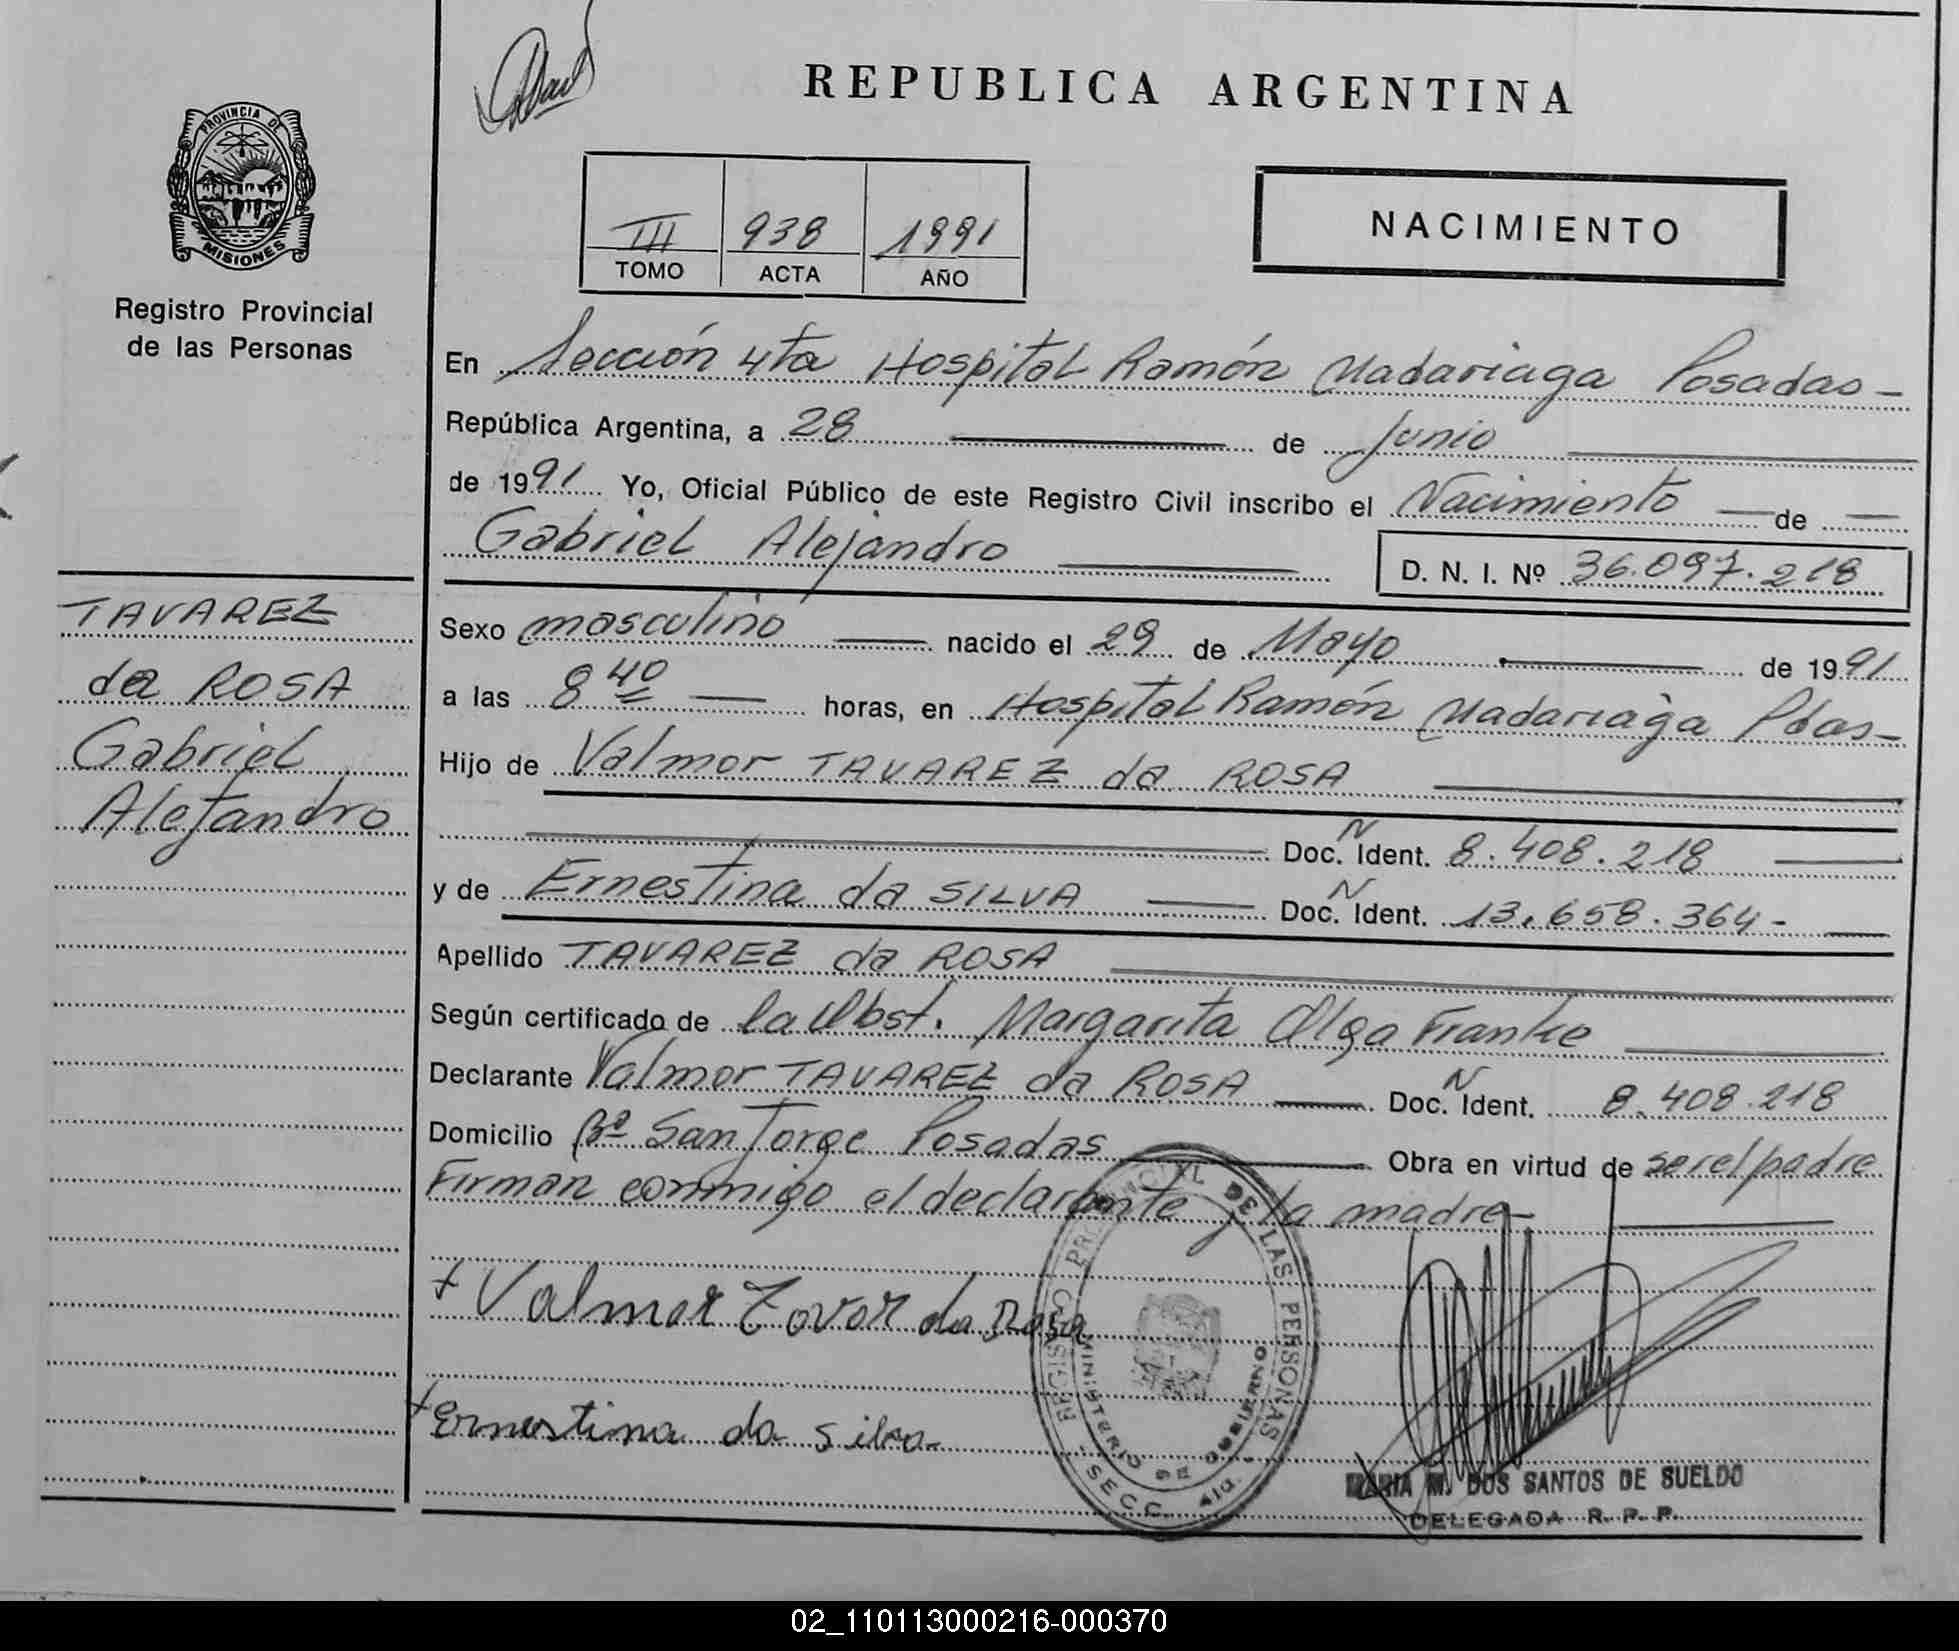 REPUBLICA ARGENTINA
PROVINCIA DE MISIONES
Registro Provincial
de las Personas
III 938 1991
TOMO ACTA AÑO
NACIMIENTO
En Sección 4ta Hospital Ramón Madariaga Posadas-
República Argentina, a 28 de Junio
de 1991 Yo, Oficial Público de este Registro Civil inscribo el Nacimiento de
Gabriel Alejandro D. N. I. Nº 36.097.218
TAVAREZ
da ROSA
Gabriel
Alejandro
Sexo masculino nacido el 29 de Mayo de 1991
a las 8 40 horas, en Hospital Ramón Madariaga Pdas-
Hijo de Valmor TAVAREZ da ROSA
Doc. N Ident. 8.408.218
y de Ernestina da SILVA Doc. N Ident. 13.658.364-
Apellido TAVAREZ da ROSA
Según certificado de la Obst. Margarita Olga Franke
Declarante Valmor TAVAREZ da ROSA Doc. N Ident. 8.408.218
Domicilio Bº San Jorge Posadas Obra en virtud de ser el padre
Firman conmigo el declarante y la madre-
+ Valmor Tavor da Rosa
+ Ernestina da silva
REGISTRO PROVINCIAL DE LAS PERSONAS
MINISTERIO DE GOBIERNO
SECC. 4ta.
MARIA M. DOS SANTOS DE SUELDO
DELEGADA R. P. P.
02_110113000216-000370